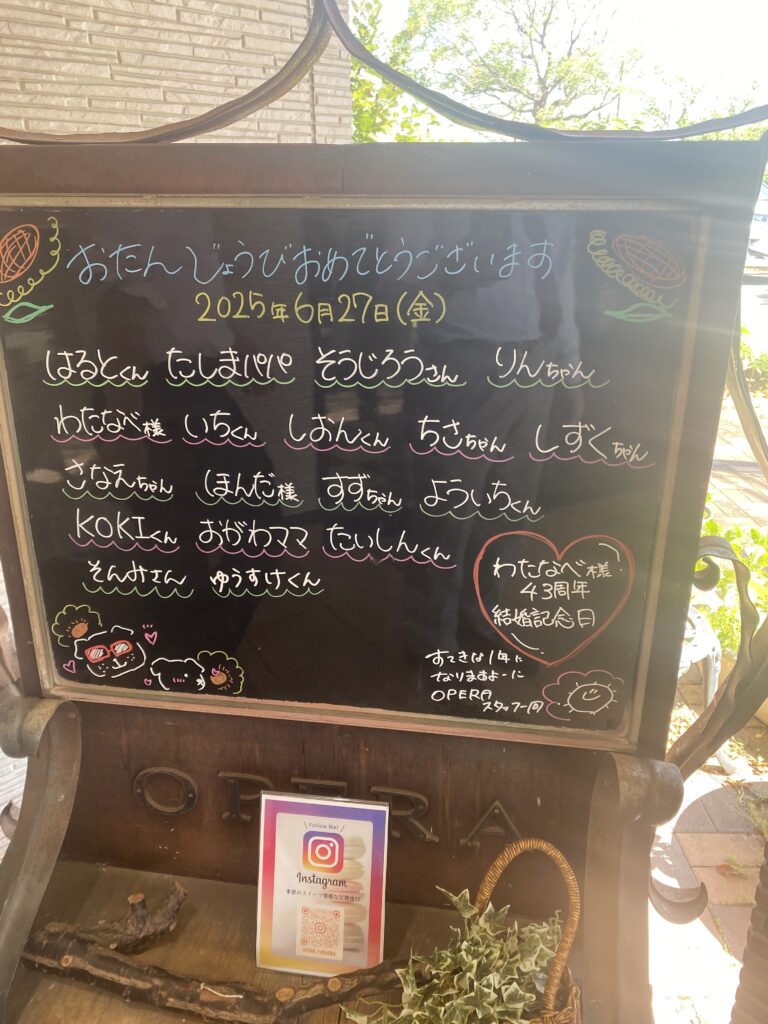 おたんじょうびおめでとうございます
2025年6月27日(金)
はるとくん たしまパパ そうじろうさん りんちゃん
わたなべ様 いちくん しおんくん ちさちゃん しずくちゃん
さなえちゃん ほんだ様 すずちゃん よういちくん
KOKIくん おがわママ たいしんくん
そんみさん ゆうすけくん
わたなべ様
43周年
結婚記念日
すてきな1年に
なりますよーに
OPERA
スタッフ一同
OPERA
Follow Me!
Instagram
季節のスイーツ情報など発信!!